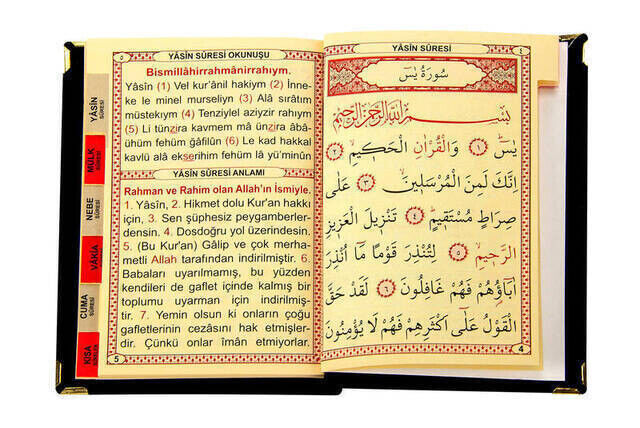 YÂSÎN SÛRESİ OKUNUŞU
٥
Bismillâhirrahmânirrahıym.
Yâsîn (1) Vel kur'ânil hakiym (2) İnne-
ke le minel murseliyn (3) Alâ sırâtım
müstekıym (4) Tenziylel aziyzir rahıym
(5) Li tünzira kavmem mâ ünzira âbâ-
ühüm fehüm ğâfilûn (6) Le kad hakkal
kavlü alâ ekserihim fehüm lâ yü'minûn
YÂSÎN SÛRESİ ANLAMI
Rahman ve Rahim olan Allah'ın İsmiyle.
1. Yâsîn, 2. Hikmet dolu Kur'an hakkı
için, 3. Sen şüphesiz peygamberler-
densin. 4. Dosdoğru yol üzerindesin.
5. (Bu Kur'an) Gâlip ve çok merha-
metli Allah tarafından indirilmiştir. 6.
Babaları uyarılmamış, bu yüzden
kendileri de gaflet içinde kalmış bir
toplumu uyarman için indirilmiş-
tir. 7. Yemin olsun ki onların çoğu
gafletlerinin cezâsını hak etmişler-
dir. Çünkü onlar iman etmiyorlar.
5
YÂSÎN
SÛRESİ
MÜLK
SÛRESİ
NEBE
SÛRESİ
VÂKIA
SÛRESİ
CUMA
SÛRESİ
KISA
SÛRELER
YÂSÎN SÛRESİ
٤
سُورَةُ يٰسٓ
بِسْمِ اللّٰهِ الرَّحْمٰنِ الرَّحِيمِ
يٰسٓ ﴿١﴾ وَالْقُرْاٰنِ الْحَكِيمِ ﴿٢﴾
اِنَّكَ لَمِنَ الْمُرْسَلِينَ ﴿٣﴾ عَلٰى
صِرَاطٍ مُسْتَقِيمٍ ﴿٤﴾ تَنْزِيلَ الْعَزِيزِ
الرَّحِيمِ ﴿٥﴾ لِتُنْذِرَ قَوْمًا مَٓا اُنْذِرَ
اٰبَٓاؤُهُمْ فَهُمْ غَافِلُونَ ﴿٦﴾ لَقَدْ حَقَّ
الْقَوْلُ عَلٰٓى اَكْثَرِهِمْ فَهُمْ لَا يُؤْمِنُونَ
4